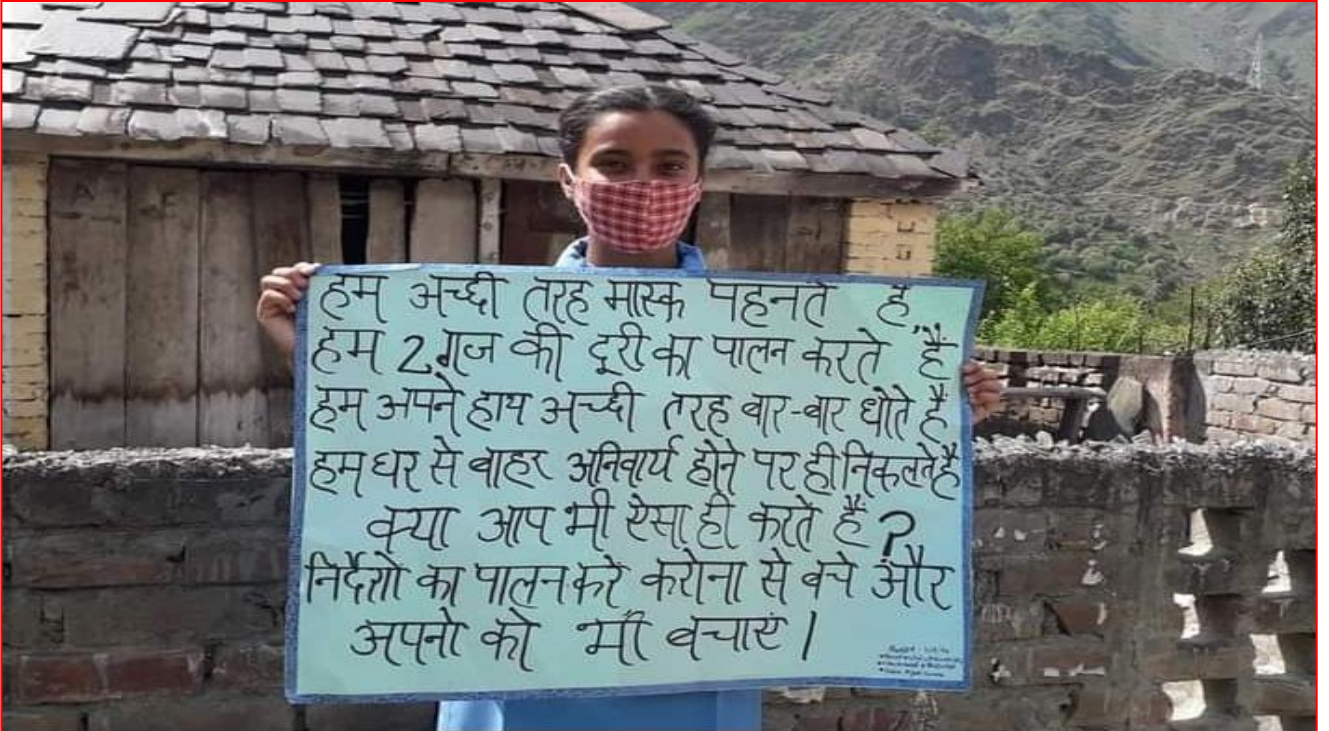 हम अच्छी तरह मास्क पहनते हैं,
हम 2 गज की दूरी का पालन करते हैं,
हम अपने हाथ अच्छी तरह बार-बार धोते हैं
हम घर से बाहर अनिवार्य होने पर ही निकलते है
क्या आप भी ऐसा ही करते हैं?
निर्देशो का पालन करे करोना से बचे और
अपनो को भी बचाएं।